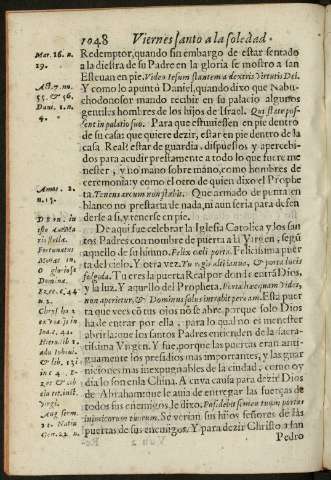 1048 Viernes santo a la soledad.
Redemptor, quando sin embargo de estar sentado
a la diestra de su Padre en la gloria se mostro a san
Esteuan en pie. Video Iesum stantem a dextris Virtutis Dei.
Y como lo apuntò Daniel, quando dixo que Nabu-
chodonosor mando recibir en su palacio algunos
gentiles hombres de los hijos de Israel. Qui stare pos-
sent in palatio suo. Para que estuuiessen en pie dentro
de su casa: que quiere dezir, estar en pie dentro de la
casa Real? estar de guardia, dispuestos y apercebi-
dos para acudir prestamente a todo lo que fuere me
nester, y no mano sobre mano, como hombres de
ceremonia: y como el otro de quien dixo el Prophe
ta. Tenens arcum non stabit. Que armado de punta en
blanco no prestaria de nada, ni aun seria para defen
derle a si, y tenerse en pie.
De aqui fue celebrar la Iglesia Catolica y los san
tos Padres con nombre de puerta a la Virgen, segũ
aquello de su himno. Felix cœli porta. Felicissima puer
ta del cielo. Y otra vez. Tu regis alti ianua, & porta lucis
fulgida. Tu eres la puerta Real por donde entrã Dios,
y la luz. Y aquello del Propheta. Porta hæc quam vides,
non aperietur, & Dominus solus intrabit per eam. Esta puer
ta que vees cõ tus ojos no se abre, porque solo Dios
ha de entrar por ella, para lo qual no es menester
abrirla: que los santos Padres entienden de la sacra-
tissima Virgen. Y fue, porque las puertas eran anti-
guamente los presidios mas importantes, y las guar
niciones mas inexpugnables de la ciudad, como oy
dia lo son en la China. A cuya causa para dezir Dios
de Abraham que le auia de entregar las fuerças de
todos sus enemigos, le dixo. Possidebit semen tuum portas
inimicorum tuorum. Se verian sus hijos señores de las
puertas de sus enemigos. Y para dezir Christo a san
Pedro
Mar. 16. n.
19.
Act. 7. n.
55. & 56.
Dani. 1. n.
4.
Amos. 2.
n. 15.
O gloriosa
Domina.
Eze. c. 44
n. 2.
Gen. 22. n.